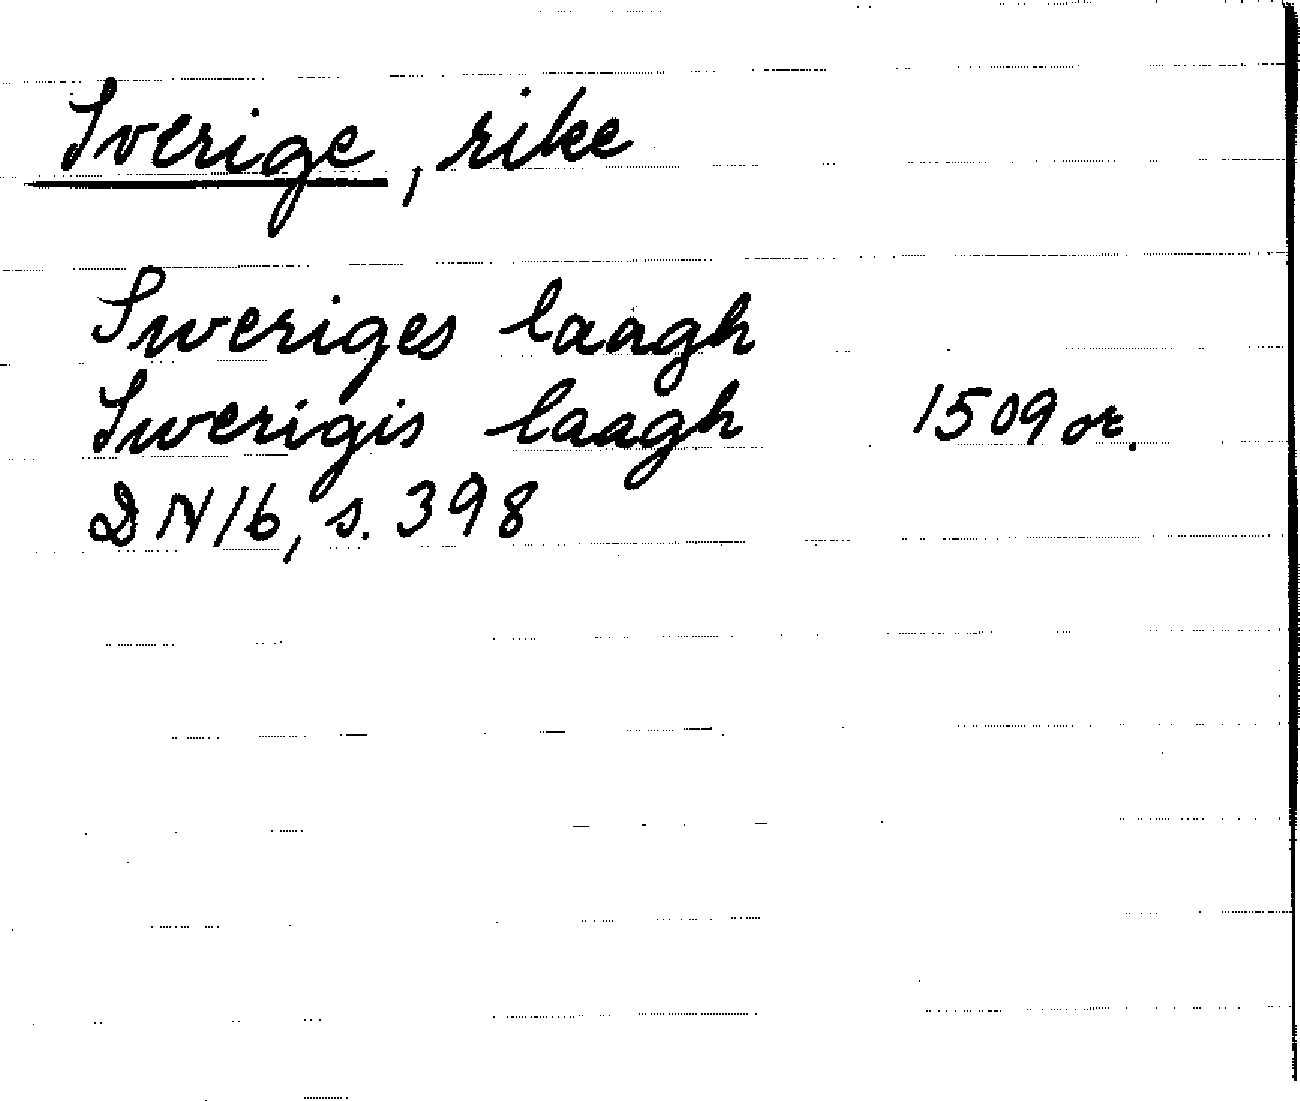 Sverige, rike
Sweriges laagh
Swerigis laagh 1509 or.
DN 16, s. 398